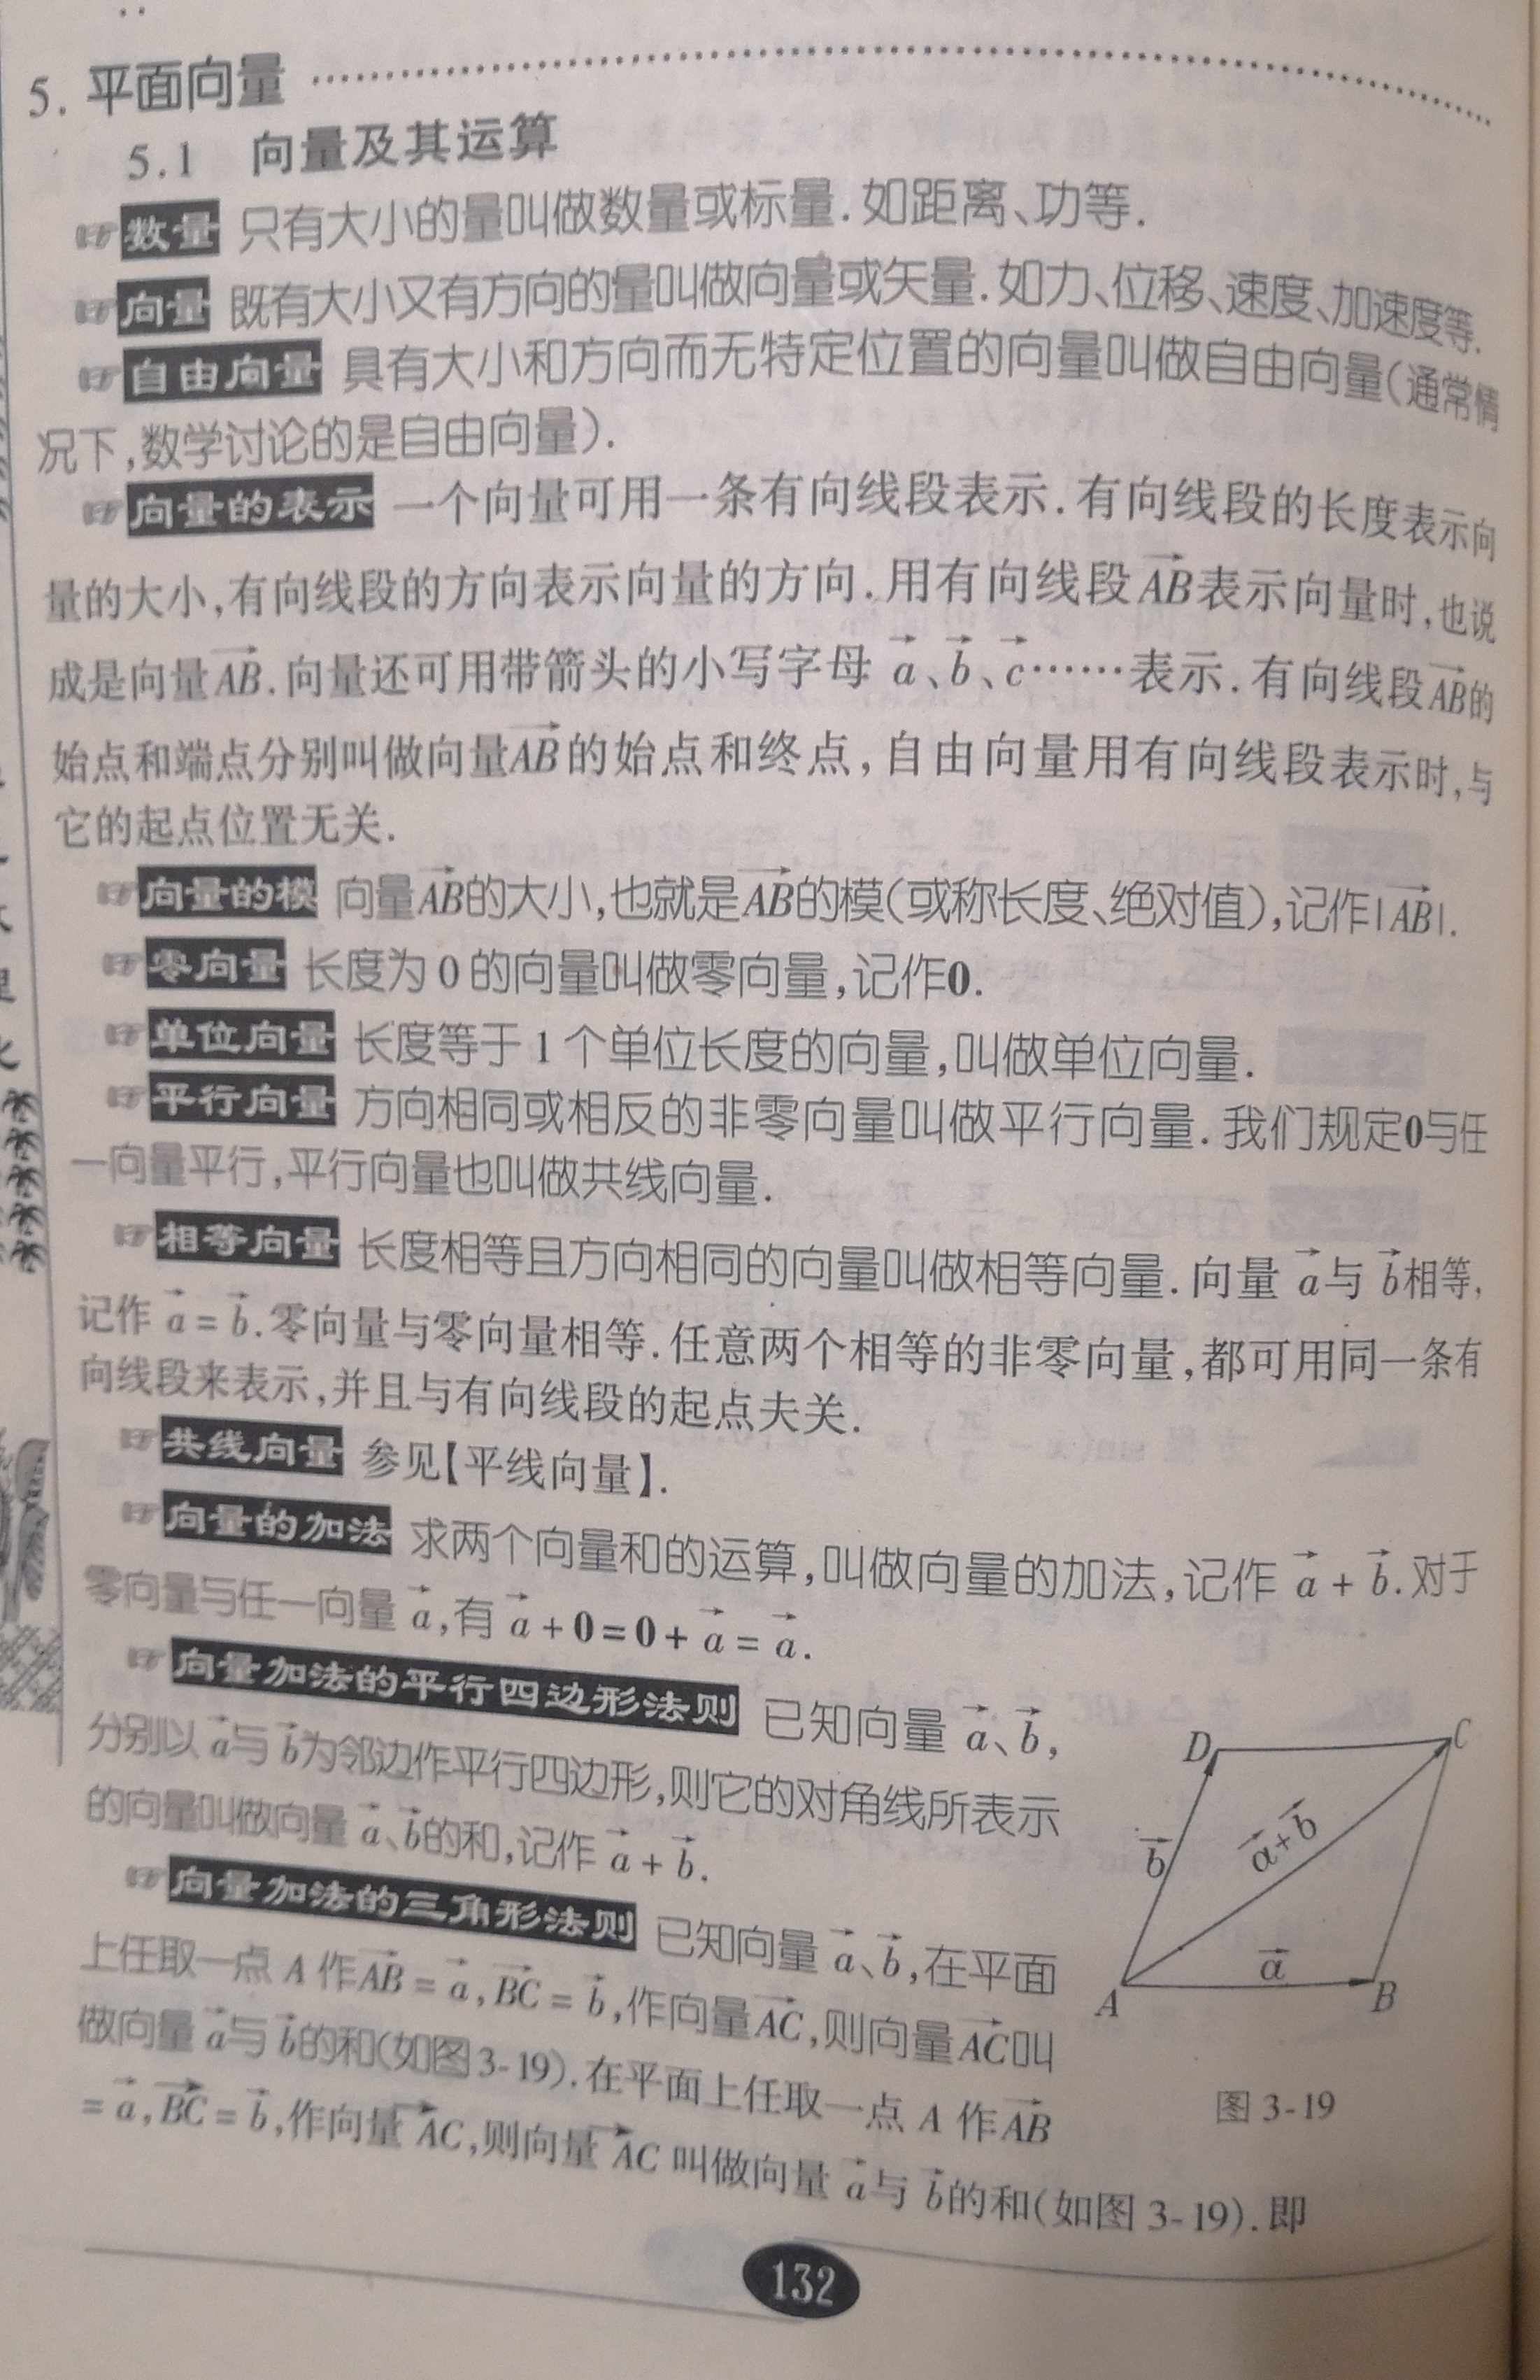 5. 平面向量
5.1 向量及其运算
☞数量 只有大小的量叫做数量或标量.如距离、功等.
☞向量 既有大小又有方向的量叫做向量或矢量.如力、位移、速度、加速度等.
☞自由向量 具有大小和方向而无特定位置的向量叫做自由向量(通常情
况下,数学讨论的是自由向量).
☞向量的表示 一个向量可用一条有向线段表示.有向线段的长度表示向
量的大小,有向线段的方向表示向量的方向.用有向线段$\overrightarrow{AB}$表示向量时,也说
成是向量$\overrightarrow{AB}$.向量还可用带箭头的小写字母 $\vec{a}$、$\vec{b}$、$\vec{c}$……表示.有向线段$\overrightarrow{AB}$的
始点和端点分别叫做向量$\overrightarrow{AB}$的始点和终点,自由向量用有向线段表示时,与
它的起点位置无关.
☞向量的模 向量$\overrightarrow{AB}$的大小,也就是$\overrightarrow{AB}$的模(或称长度、绝对值),记作|$\overrightarrow{AB}$|.
☞零向量 长度为 0 的向量叫做零向量,记作0.
☞单位向量 长度等于 1 个单位长度的向量,叫做单位向量.
☞平行向量 方向相同或相反的非零向量叫做平行向量.我们规定0与任
一向量平行,平行向量也叫做共线向量.
☞相等向量 长度相等且方向相同的向量叫做相等向量.向量 $\vec{a}$与 $\vec{b}$相等,
记作 $\vec{a}$ = $\vec{b}$.零向量与零向量相等.任意两个相等的非零向量,都可用同一条有
向线段来表示,并且与有向线段的起点夫关.
☞共线向量 参见【平线向量】.
☞向量的加法 求两个向量和的运算,叫做向量的加法,记作 $\vec{a}$ + $\vec{b}$.对于
零向量与任一向量 $\vec{a}$,有 $\vec{a}$ + 0 = 0 + $\vec{a}$ = $\vec{a}$.
☞向量加法的平行四边形法则 已知向量 $\vec{a}$、$\vec{b}$,
分别以 $\vec{a}$与 $\vec{b}$为邻边作平行四边形,则它的对角线所表示
的向量叫做向量 $\vec{a}$、$\vec{b}$的和,记作 $\vec{a}$ + $\vec{b}$.
☞向量加法的三角形法则 已知向量 $\vec{a}$、$\vec{b}$,在平面
上任取一点 A 作$\overrightarrow{AB}$ = $\vec{a}$,$\overrightarrow{BC}$ = $\vec{b}$,作向量$\overrightarrow{AC}$,则向量$\overrightarrow{AC}$叫
做向量 $\vec{a}$与 $\vec{b}$的和(如图3-19).在平面上任取一点 A 作$\overrightarrow{AB}$
= $\vec{a}$,$\overrightarrow{BC}$ = $\vec{b}$,作向量 $\overrightarrow{AC}$,则向量 $\overrightarrow{AC}$ 叫做向量 $\vec{a}$与 $\vec{b}$的和(如图 3-19).即
D
C
$\vec{b}$
$\vec{a}$+$\vec{b}$
$\vec{a}$
A
B
图 3-19
132